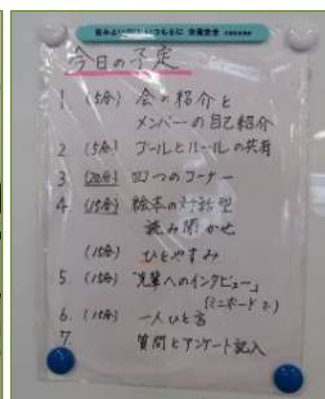 今日の予定
1. (5分) 会の紹介と
メンバーの自己紹介
2. (5分) ゴールとルールの共有
3. (20分) 四つのコーナー
4. (15分) 絵本の対話型
読み聞かせ
(15分) ひとやすみ
5. (15分) 「先輩へのインタビュー」
(ミニボード
6. 一人ひと言
7. 質問とアンケート記入